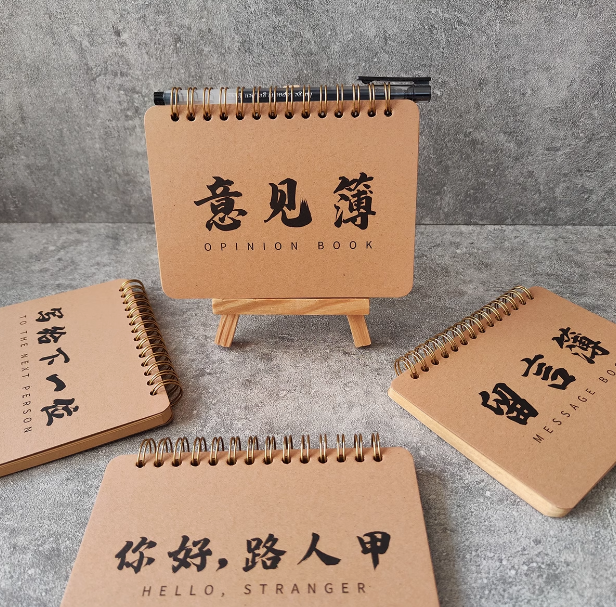 意见簿
OPINION BOOK
写给下一位
TO THE NEXT PERSON
留言簿
MESSAGE
你好，路人甲
HELLO, STRANGER